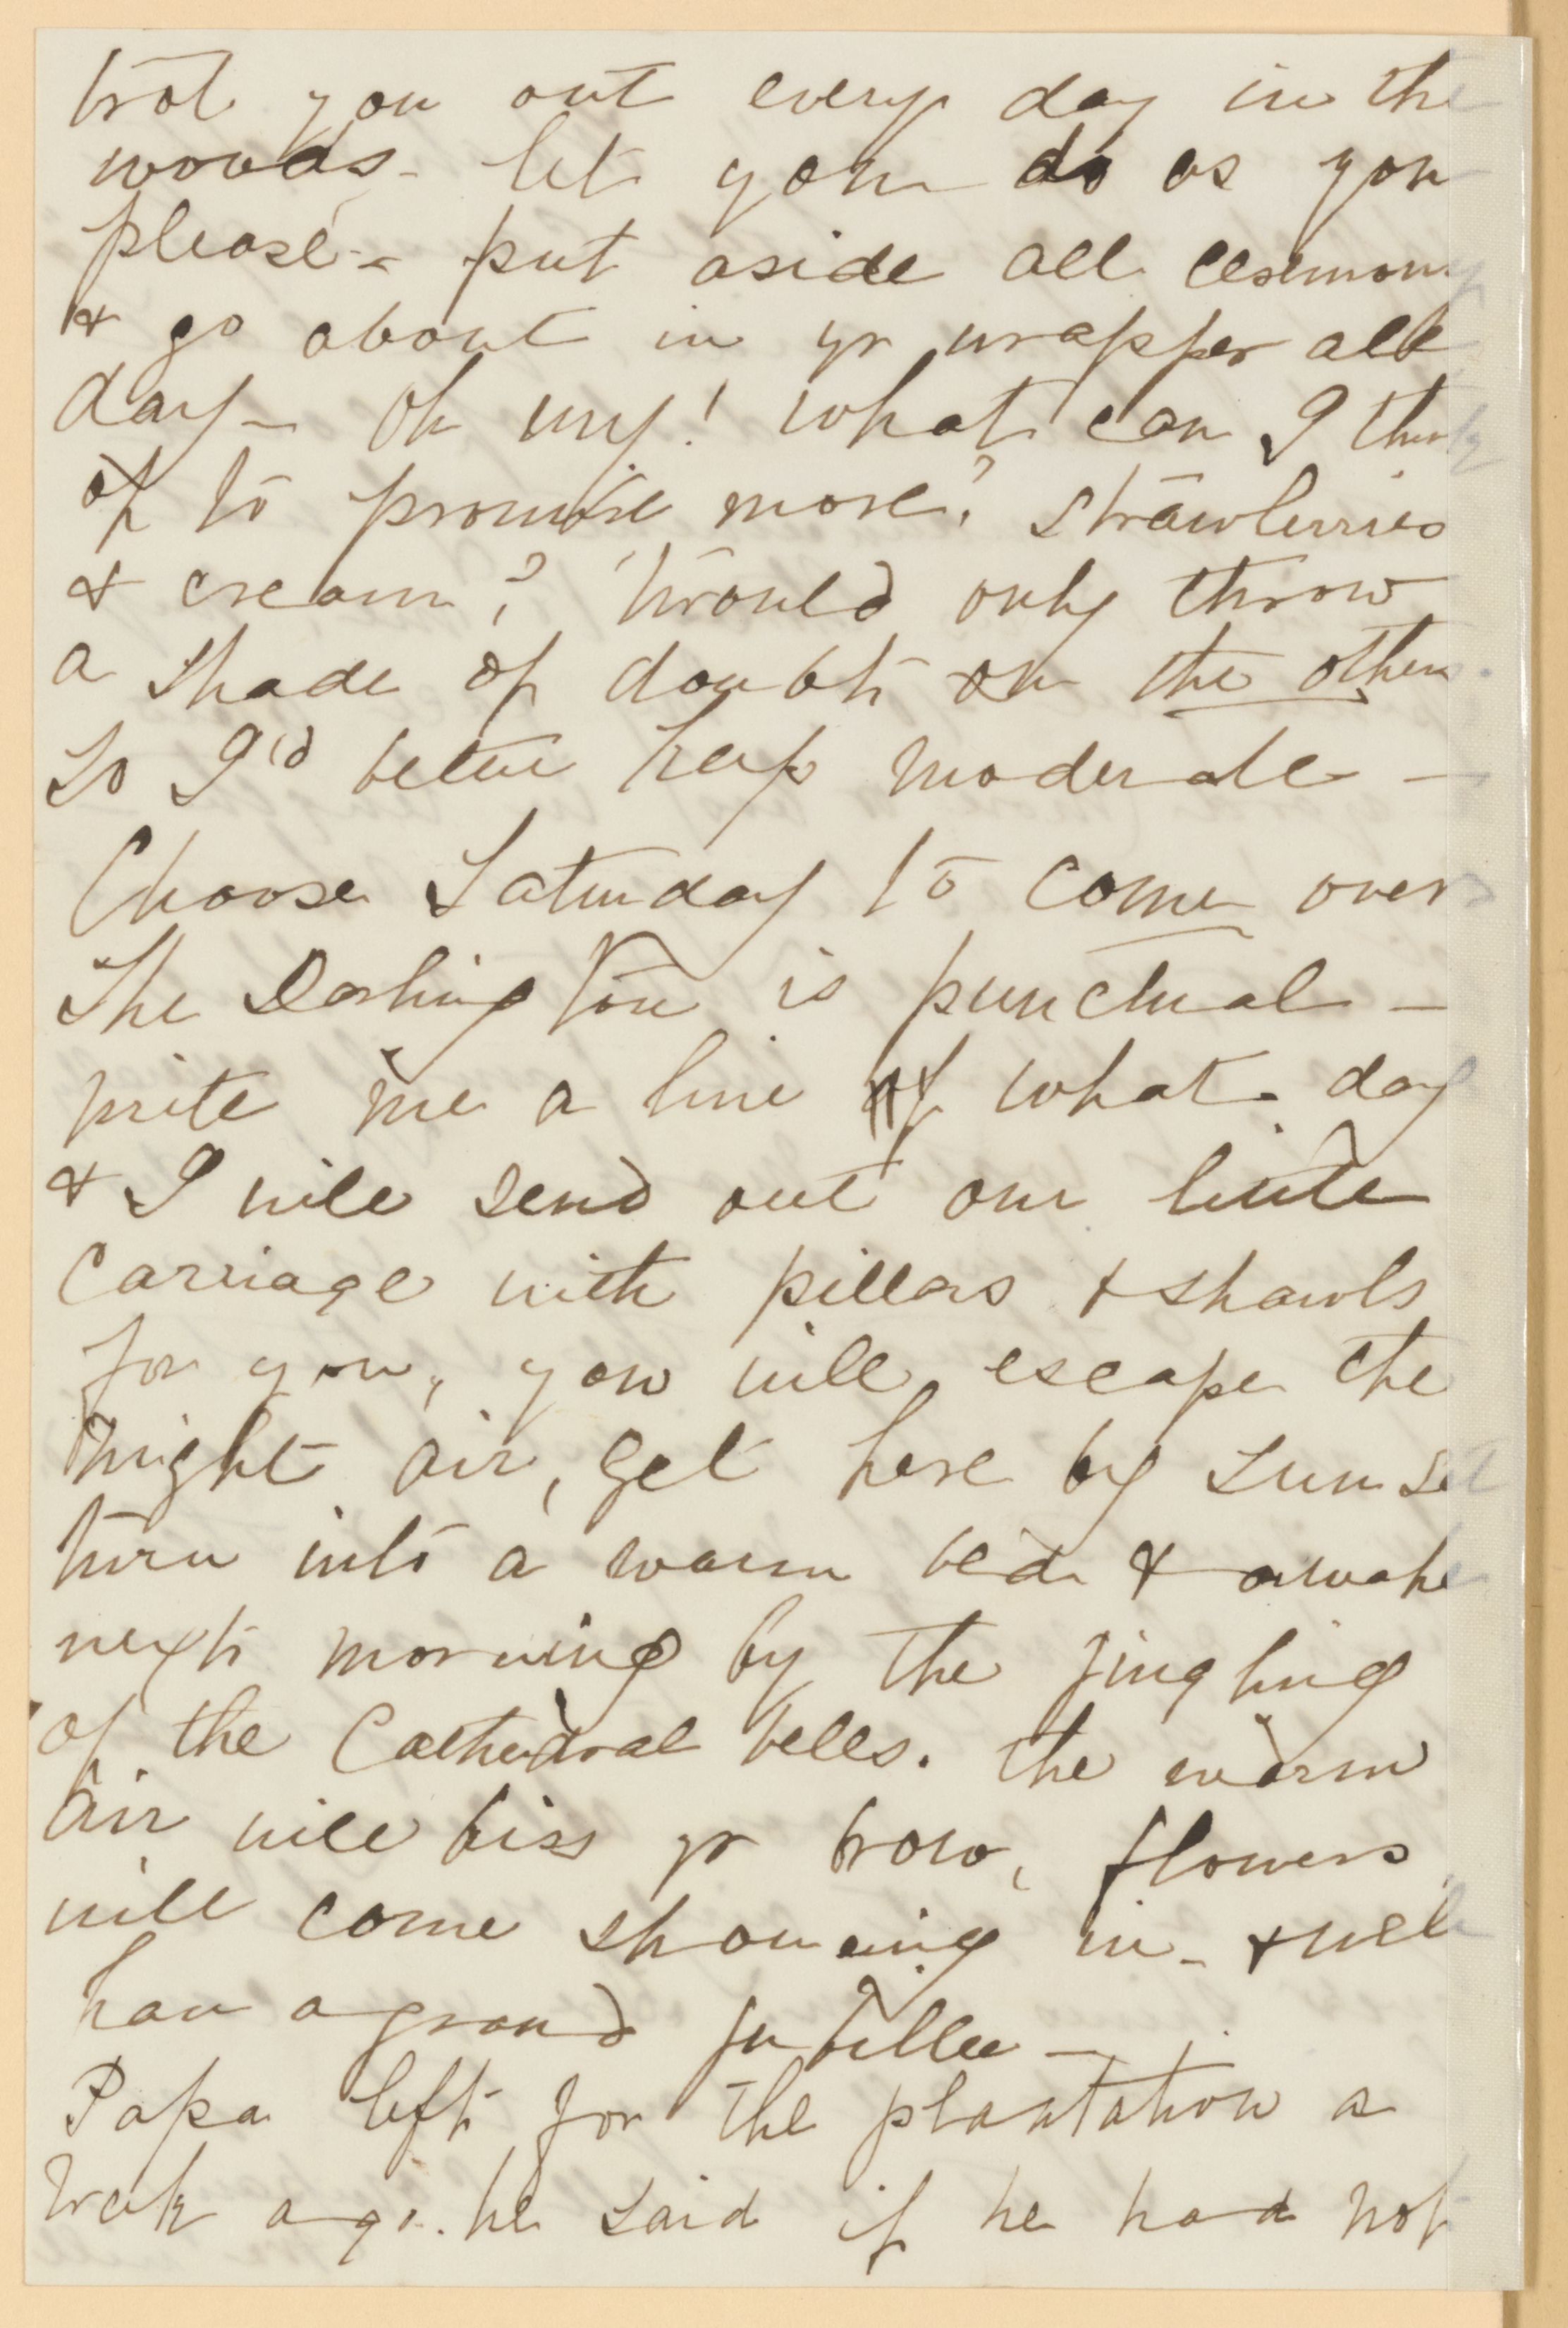 trot you out every day in the
woods - let you do as you
please - put aside all ceremony
& go about in yr wrapper all
day - Oh my! What can I think
of to promise more? Strawberries
& cream? Would only throw
a shade of doubt on the others.
So I'd better keep moderate -
Choose Saturday to come over
The Darlington is punctual -
write me a line of what day
& I will send out our little
carriage with pillars & shawls
for you, you will escape the
night air, get here by sunset
turn into a warm bed & awake
next morning by the jingling
of the Cathedral bells. the warm
air will kiss yr brow, flowers
will come showering in - & we'll
have a grand jubillee -
Papa left for the plantation a
week ago. he said if he had not